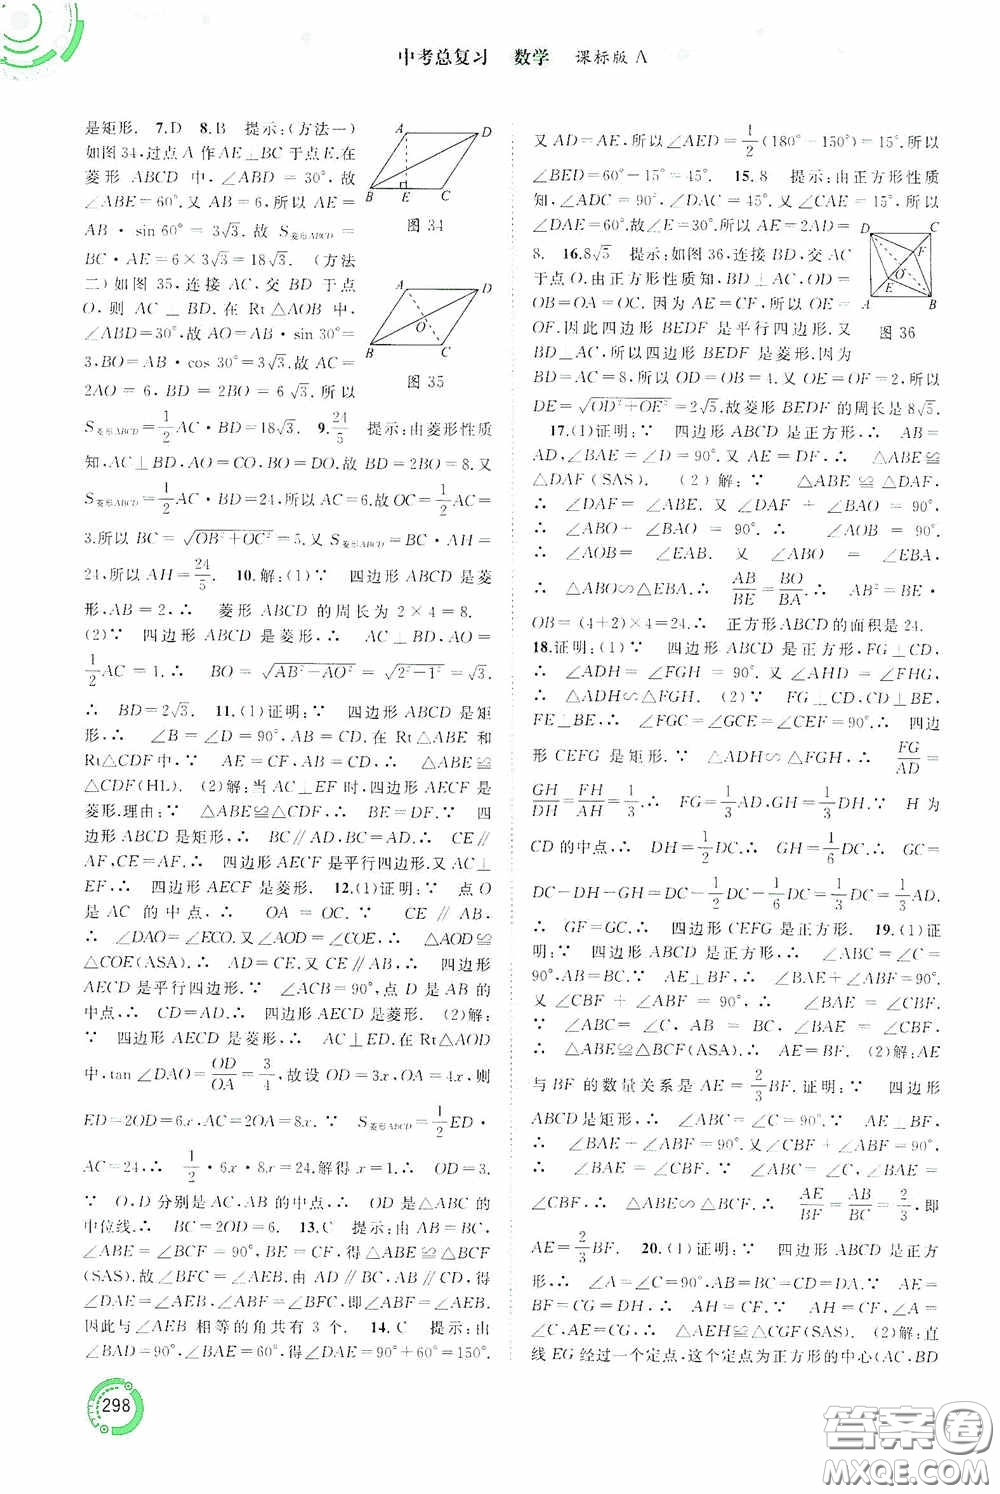 中考总复习 数学 课标版 A
是矩形. 7.D 8.B 提示:(方法一)
如图34,过点A作AE⊥BC于点E.在
菱形 ABCD 中,∠ABD = 30°,故
∠ABE=60°.又 AB=6,所以 AE=
AB·sin 60°=3√3.故 S菱形ABCD=
BC·AE=6×3√3=18√3.(方法
二)如图 35,连接 AC,交 BD 于点
O,则 AC⊥BD.在 Rt△AOB 中,
∠ABD=30°,故 AO=AB·sin 30°=
3,BO=AB·cos 30°=3√3.故 AC=
2AO=6,BD=2BO=6√3.所以
S菱形ABCD=1/2AC·BD=18√3. 9.24/5 提示:由菱形性质
知,AC⊥BD,AO=CO,BO=DO.故 BD=2BO=8.又
S菱形ABCD=1/2AC·BD=24,所以 AC=6.故OC=1/2AC=
3.所以 BC=√(OB²+OC²)=5.又 S菱形ABCD=BC·AH=
24,所以 AH=24/5. 10.解:(1)∵ 四边形 ABCD 是菱
形,AB=2,∴ 菱形 ABCD 的周长为 2×4=8.
(2)∵ 四边形 ABCD 是菱形,∴ AC⊥BD,AO=
1/2AC=1.∴ BO=√(AB²-AO²)=√(2²-1²)=√3.
∴ BD=2√3. 11.(1)证明:∵ 四边形 ABCD 是矩
形,∴ ∠B=∠D=90°,AB=CD.在 Rt△ABE 和
Rt△CDF中,∵ AE=CF,AB=CD,∴ △ABE≌
△CDF(HL). (2)解:当 AC⊥EF 时,四边形 AECF 是
菱形.理由:∵ △ABE≌△CDF,∴ BE=DF.∵ 四
边形 ABCD 是矩形,∴ BC∥AD,BC=AD.∴ CE∥
AF,CE=AF.∴ 四边形 AECF 是平行四边形.又 AC⊥
EF,∴ 四边形 AECF 是菱形. 12.(1)证明:∵ 点 O
是 AC 的中点,∴ OA=OC.∵ CE∥AB,
∴ ∠DAO=∠ECO.又∠AOD=∠COE,∴ △AOD≌
△COE(ASA).∴ AD=CE.又 CE∥AB,∴ 四边形
AECD 是平行四边形.∵ ∠ACB=90°,点 D 是 AB 的
中点,∴ CD=AD.∴ 四边形 AECD 是菱形. (2)解:
∵ 四边形 AECD 是菱形,∴ AC⊥ED.在 Rt△AOD
中,tan ∠DAO=OD/OA=3/4,故设 OD=3x,OA=4x,则
ED=2OD=6x,AC=2OA=8x.∵ S菱形ABCD=1/2ED
·AC=24,∴ 1/2·6x·8x=24.解得 x=1.∴ OD=3.
∵ O,D 分别是 AC,AB 的中点,∴ OD 是△ABC 的
中位线.∴ BC=2OD=6. 13.C 提示:由 AB=BC,
∠ABE=∠BCF=90°,BE=CF,得△ABE≌△BCF
(SAS).故∠BFC=∠AEB.由 AD∥BC,AB∥CD,得
∠DAE=∠AEB,∠ABF=∠BFC,即∠ABF=∠AEB.
因此与∠AEB 相等的角共有 3 个. 14.C 提示:由
∠BAD=90°,∠BAE=60°,得∠DAE=90°+60°=150°.
A D B E C
图 34
A D O B C
图 35
又 AD=AE,所以∠AED=1/2(180°-150°)=15°.所以
∠BED=60°-15°=45°. 15.8 提示:由正方形性质
知,∠ADC=90°,∠DAC=45°.又∠CAE=15°,所以
∠DAE=60°.故∠E=30°.所以 AE=2AD=
8. 16.8√5 提示:如图 36,连接 BD,交 AC
于点 O.由正方形性质知,BD⊥AC,OD=
OB=OA=OC.因为 AE=CF,所以 OE=
OF.因此四边形 BEDF 是平行四边形.又
BD⊥AC,所以四边形 BEDF 是菱形.因为
BD=AC=8,所以 OD=OB=4.又 OE=OF=2,所以
DE=√(OD²+OE²)=2√5.故菱形 BEDF 的周长是 8√5.
17.(1)证明:∵ 四边形 ABCD 是正方形,∴ AB=
AD,∠BAE=∠D=90°.又 AF=DE,∴ △ABE≌
△DAF(SAS). (2)解:∵ △ABE≌△DAF,
∴ ∠DAF=∠ABE.又∠DAF+∠BAO=90°,
∴ ∠ABO+∠BAO=90°.∴ ∠AOB=90°.
∴ ∠AOB=∠EAB.又∠ABO=∠EBA,
∴ △ABO∽△EBA.∴ AB/BE=BO/BA.∴ AB²=BE·
OB=(4+2)×4=24.∴ 正方形 ABCD 的面积是 24.
18.证明:(1)∵ 四边形 ABCD 是正方形,FG⊥CD,
∴ ∠ADH=∠FGH=90°.又∠AHD=∠FHG,
∴ △ADH∽△FGH. (2)∵ FG⊥CD,CD⊥BE,
FE⊥BE,∴ ∠FGC=∠GCE=∠CEF=90°.∴ 四边
形 CEFG 是矩形.∵ △ADH∽△FGH,∴ FG/AD=
GH/DH=FH/AH=1/3.∴ FG=1/3AD,GH=1/3DH.∵ H 为
CD 的中点,∴ DH=1/2DC.∴ GH=1/6DC.∴ GC=
DC-DH-GH=DC-1/2DC-1/6DC=1/3DC=1/3AD.
∴ GF=GC.∴ 四边形 CEFG 是正方形. 19.(1)证
明:∵ 四边形 ABCD 是正方形,∴ ∠ABC=∠C=
90°,AB=BC.∵ AE⊥BF,∴ ∠BAE+∠ABF=90°.
又∠CBF+∠ABF=90°,∴ ∠BAE=∠CBF.
∵ ∠ABC=∠C,AB=BC,∠BAE=∠CBF,
∴ △ABE≌△BCF(ASA).∴ AE=BF. (2)解:AE
与 BF 的数量关系是 AE=2/3BF.证明:∵ 四边形
ABCD 是矩形,∴ ∠ABC=∠C=90°.∵ AE⊥BF,
∴ ∠BAE+∠ABF=90°.又∠CBF+∠ABF=90°,
∴ ∠BAE=∠CBF.∵ ∠ABC=∠C,∠BAE=
∠CBF,∴ △ABE∽△BCF.∴ AE/BF=AB/BC=2/3,即
AE=2/3BF. 20.(1)证明:∵ 四边形 ABCD 是正方
形,∴ ∠A=∠C=90°,AB=BC=CD=DA.∵ AE=
BF=CG=DH,∴ AH=CF.∵ AH=CF,
∠A=∠C,AE=CG,∴ △AEH≌△CGF(SAS). (2)解:直
线 EG 经过一个定点,这个定点为正方形的中心(AC,BD
D C F O E A B
图 36
298
答案卷
MXQE.COM